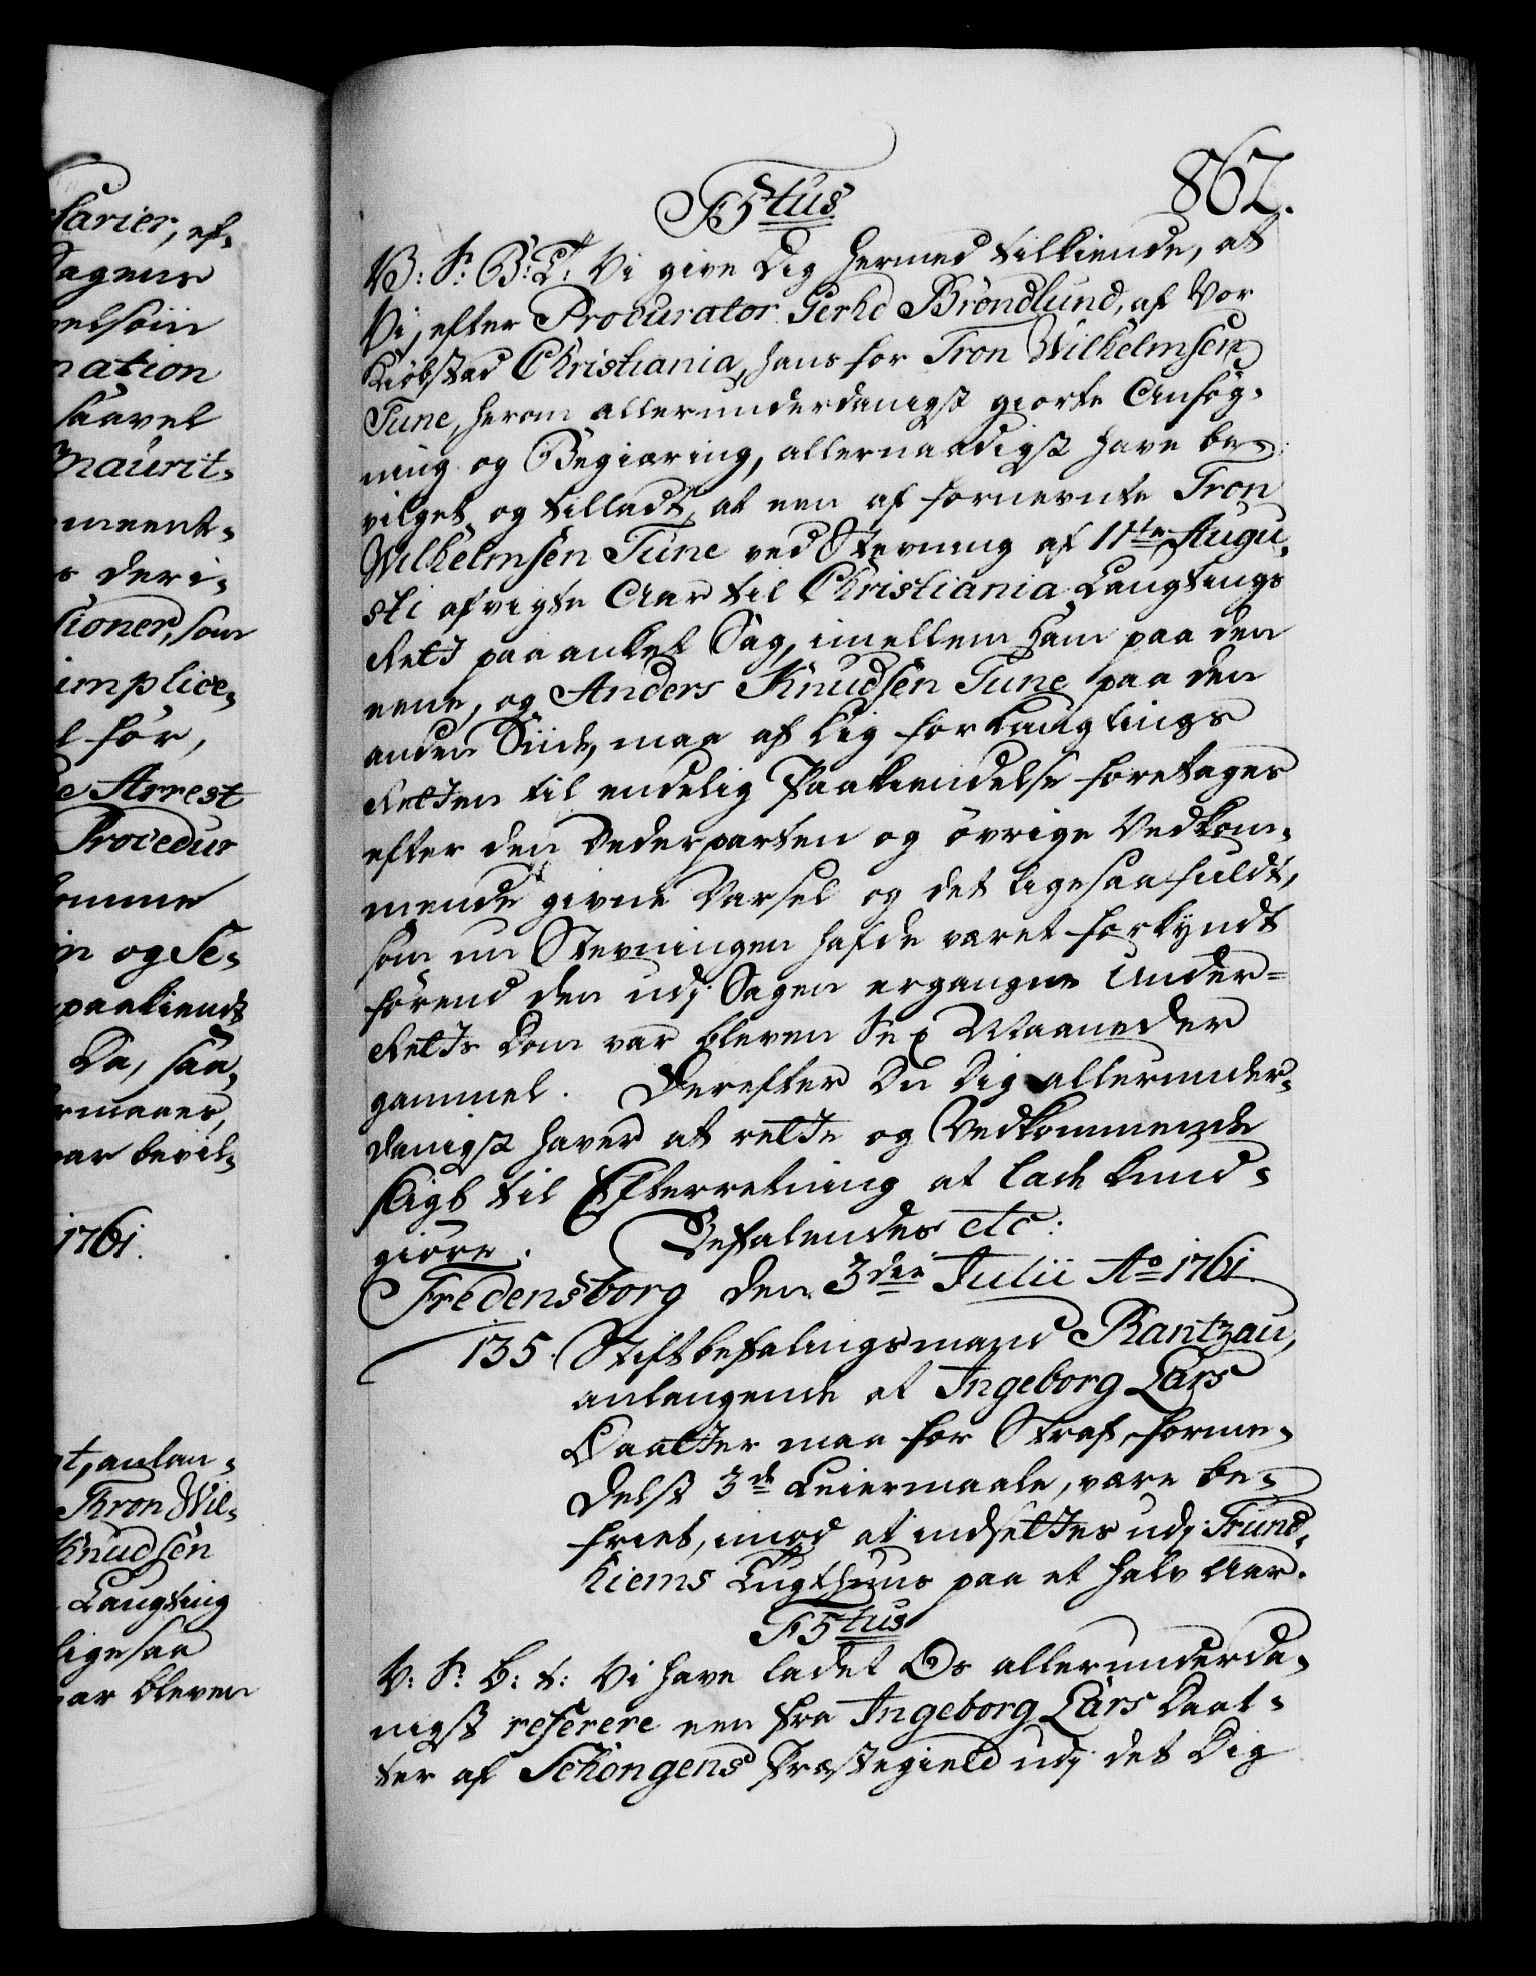 862.
F5tus
V: S: B: T: Vi give Dig hermed tilkiende, at
Vi, efter Procurator Gerhd Bröndlund, af Vor
Kiöbstad Christiania, hans for Tron Wilhelmsen
Tune, herom allerunderdanigst giorte Ansög-
ning og Begiæring, allernaadigst have be-
vilget og tilladt, at een af fornevnte Tron
Wilhelmsen Tune ved Stevning af 11te Augu-
sti afvigte Aar til Christiania Laugtings
Rett paaanket Sag, imellem ham paa den
eene, og Anders Knudsen Tune paa den
anden Siide, maa af Dig for Laugtings
Retten til endelig Paakiendelse foretages
efter den Vederparten og övrige Vedkom-
mende givne Varsel og det ligesaa fuldt,
som om Stevningen hafde været forkyndt
förend den udj Sagen ergangne Under-
Retts Dom var bleven Sex Maaneder
gammel. Derefter Du Dig allerunder-
danigst haver at rette og Vedkommende
sligt til Efterretning at lade kund-
giöre. Befalendes etc:
Fredensborg den 3die Julii Ao 1761
135. Stiftbefalingsmand Rantzau,
anlangende at Ingeborg Lars
Daatter maa for Straf, forme-
delst 3de Leiermaale, være be-
friet, imod at indsettes udj Trund-
hiems Tugthuus paa et halv Aar.
F5tus
V: S: B: t: Vi have ladet Os allerunderda-
nigst referere een fra Ingeborg Lars Daat-
ter af Schöngens Præstegield udj det Dig
larier, ef-
Sagens
velsöin
nation
saavel
Maurit-
ment-
s deri-
tioner, som
implice-
l för,
e Arrest
Procedur
komme
in og Se-
paakiendt
Da, saa-
rmaaer,
ar bevil-
1761.
t, anlan-
Thron Wil-
Knudsen
Laugting
ligesaa
ar bleven